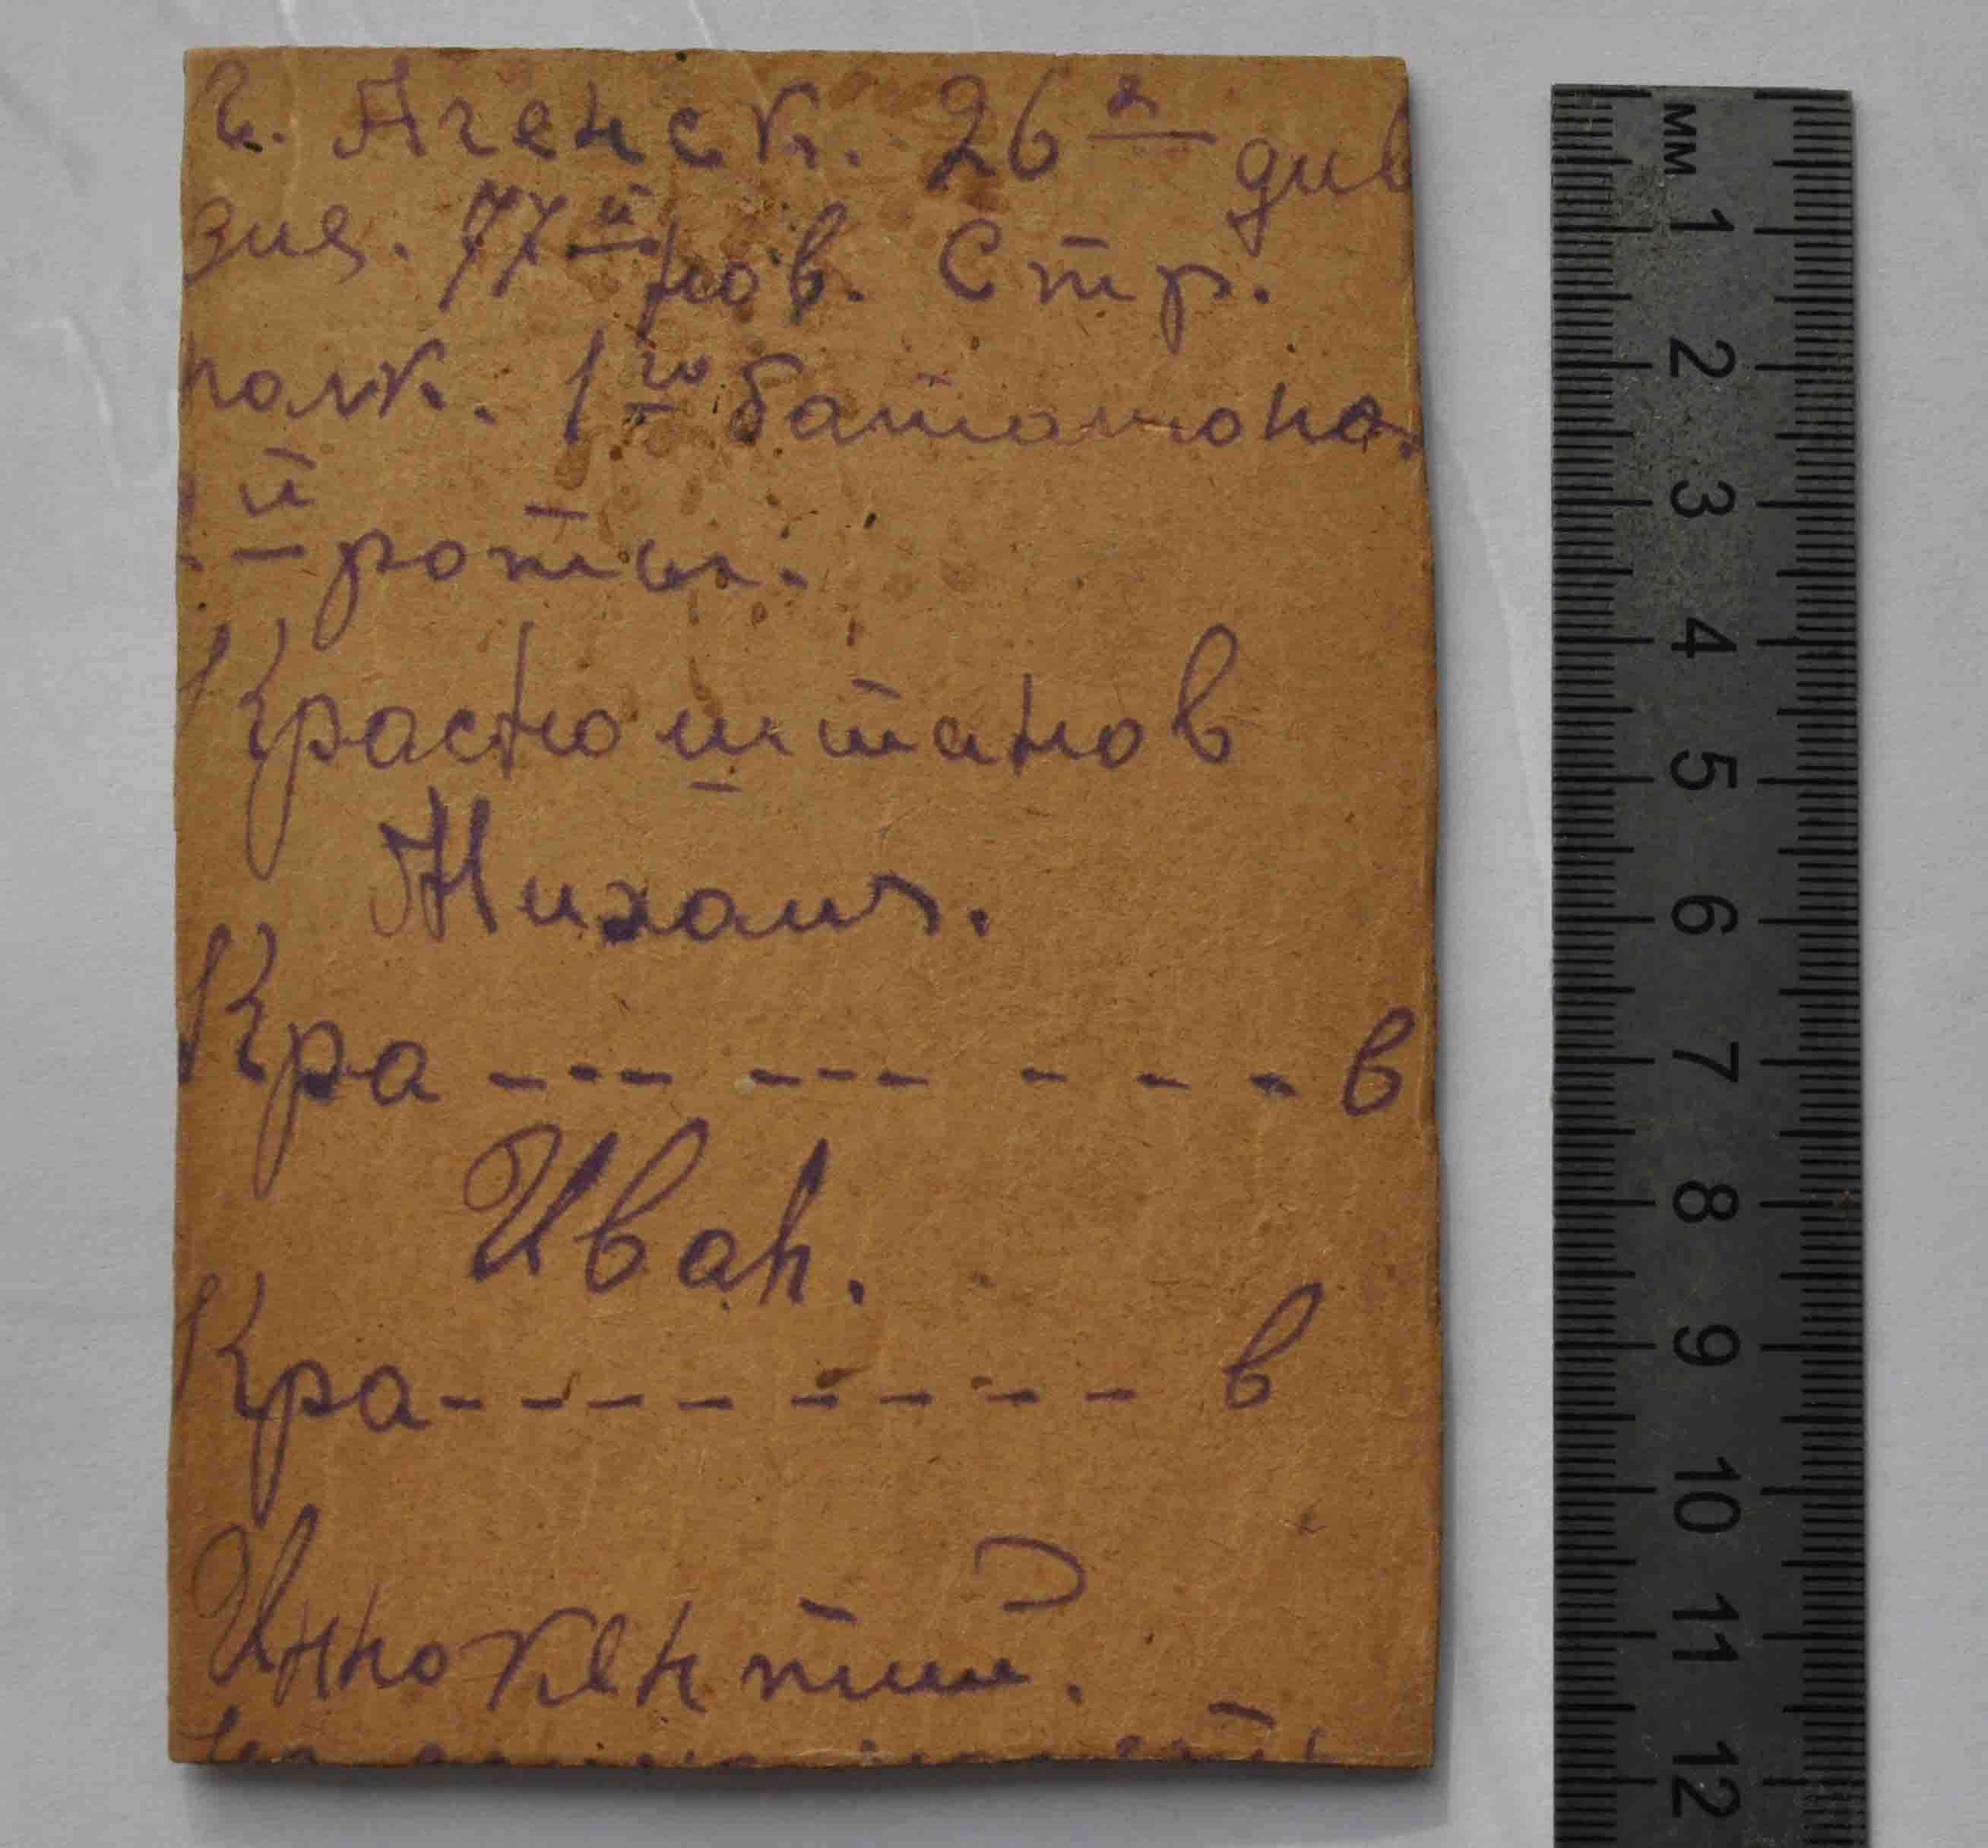 г. Агенск. 26 я див
зия. 77 й нов. Стр.
полк. 1 го баталиона.
й роты.
Красноштанов
Михаил.
Кра --- --- - - - в
Иван.
Кра - - - - - - - - - в
Иннокентий.
мм 1 2 3 4 5 6 7 8 9 10 11 12